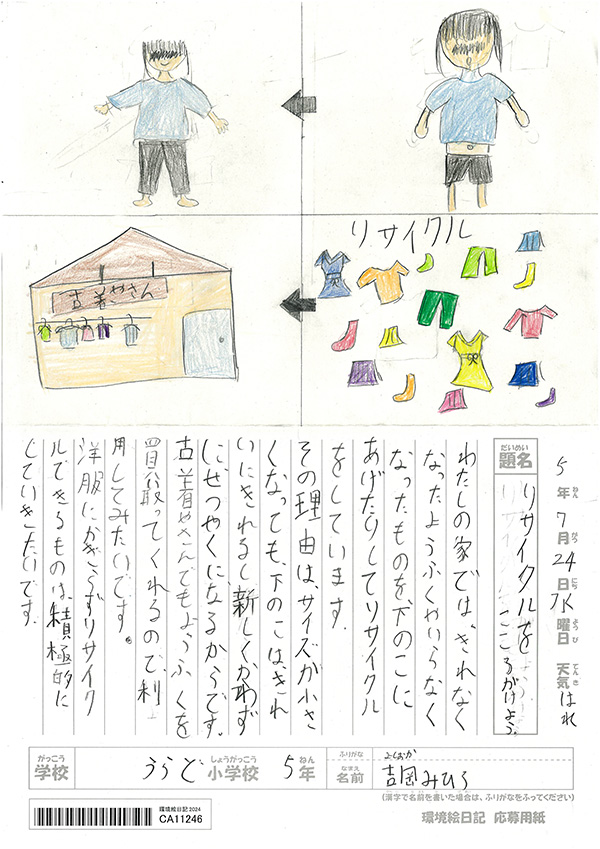 リサイクル
古着やさん
5年7月24日水曜日 天気はれ
ねん がつ にち ようび てんき
だいめい
題名
リサイクルを
こころがけよう
わたしの家では、きれなく
なったようふくやいらなく
なったものを、下のこに
あげたりしてリサイクル
をしています。
その理由は、サイズが小さ
くなっても、下のこは、きれ
いにきれるし、新しくかわず
にせつやくになるからです。
古着やさんでもようふくを
買い取ってくれるので、利
用してみたいです。
洋服にかぎらずリサイク
ルできるものは、積極的に
していきたいです。
がっこう しょうがっこう ねん
学校 うらど小学校 5年
ふりがな よしおか
なまえ
名前 吉岡みひろ
(漢字で名前を書いた場合は、ふりがなをふってください)
環境絵日記2024
CA11246
環境絵日記 応募用紙